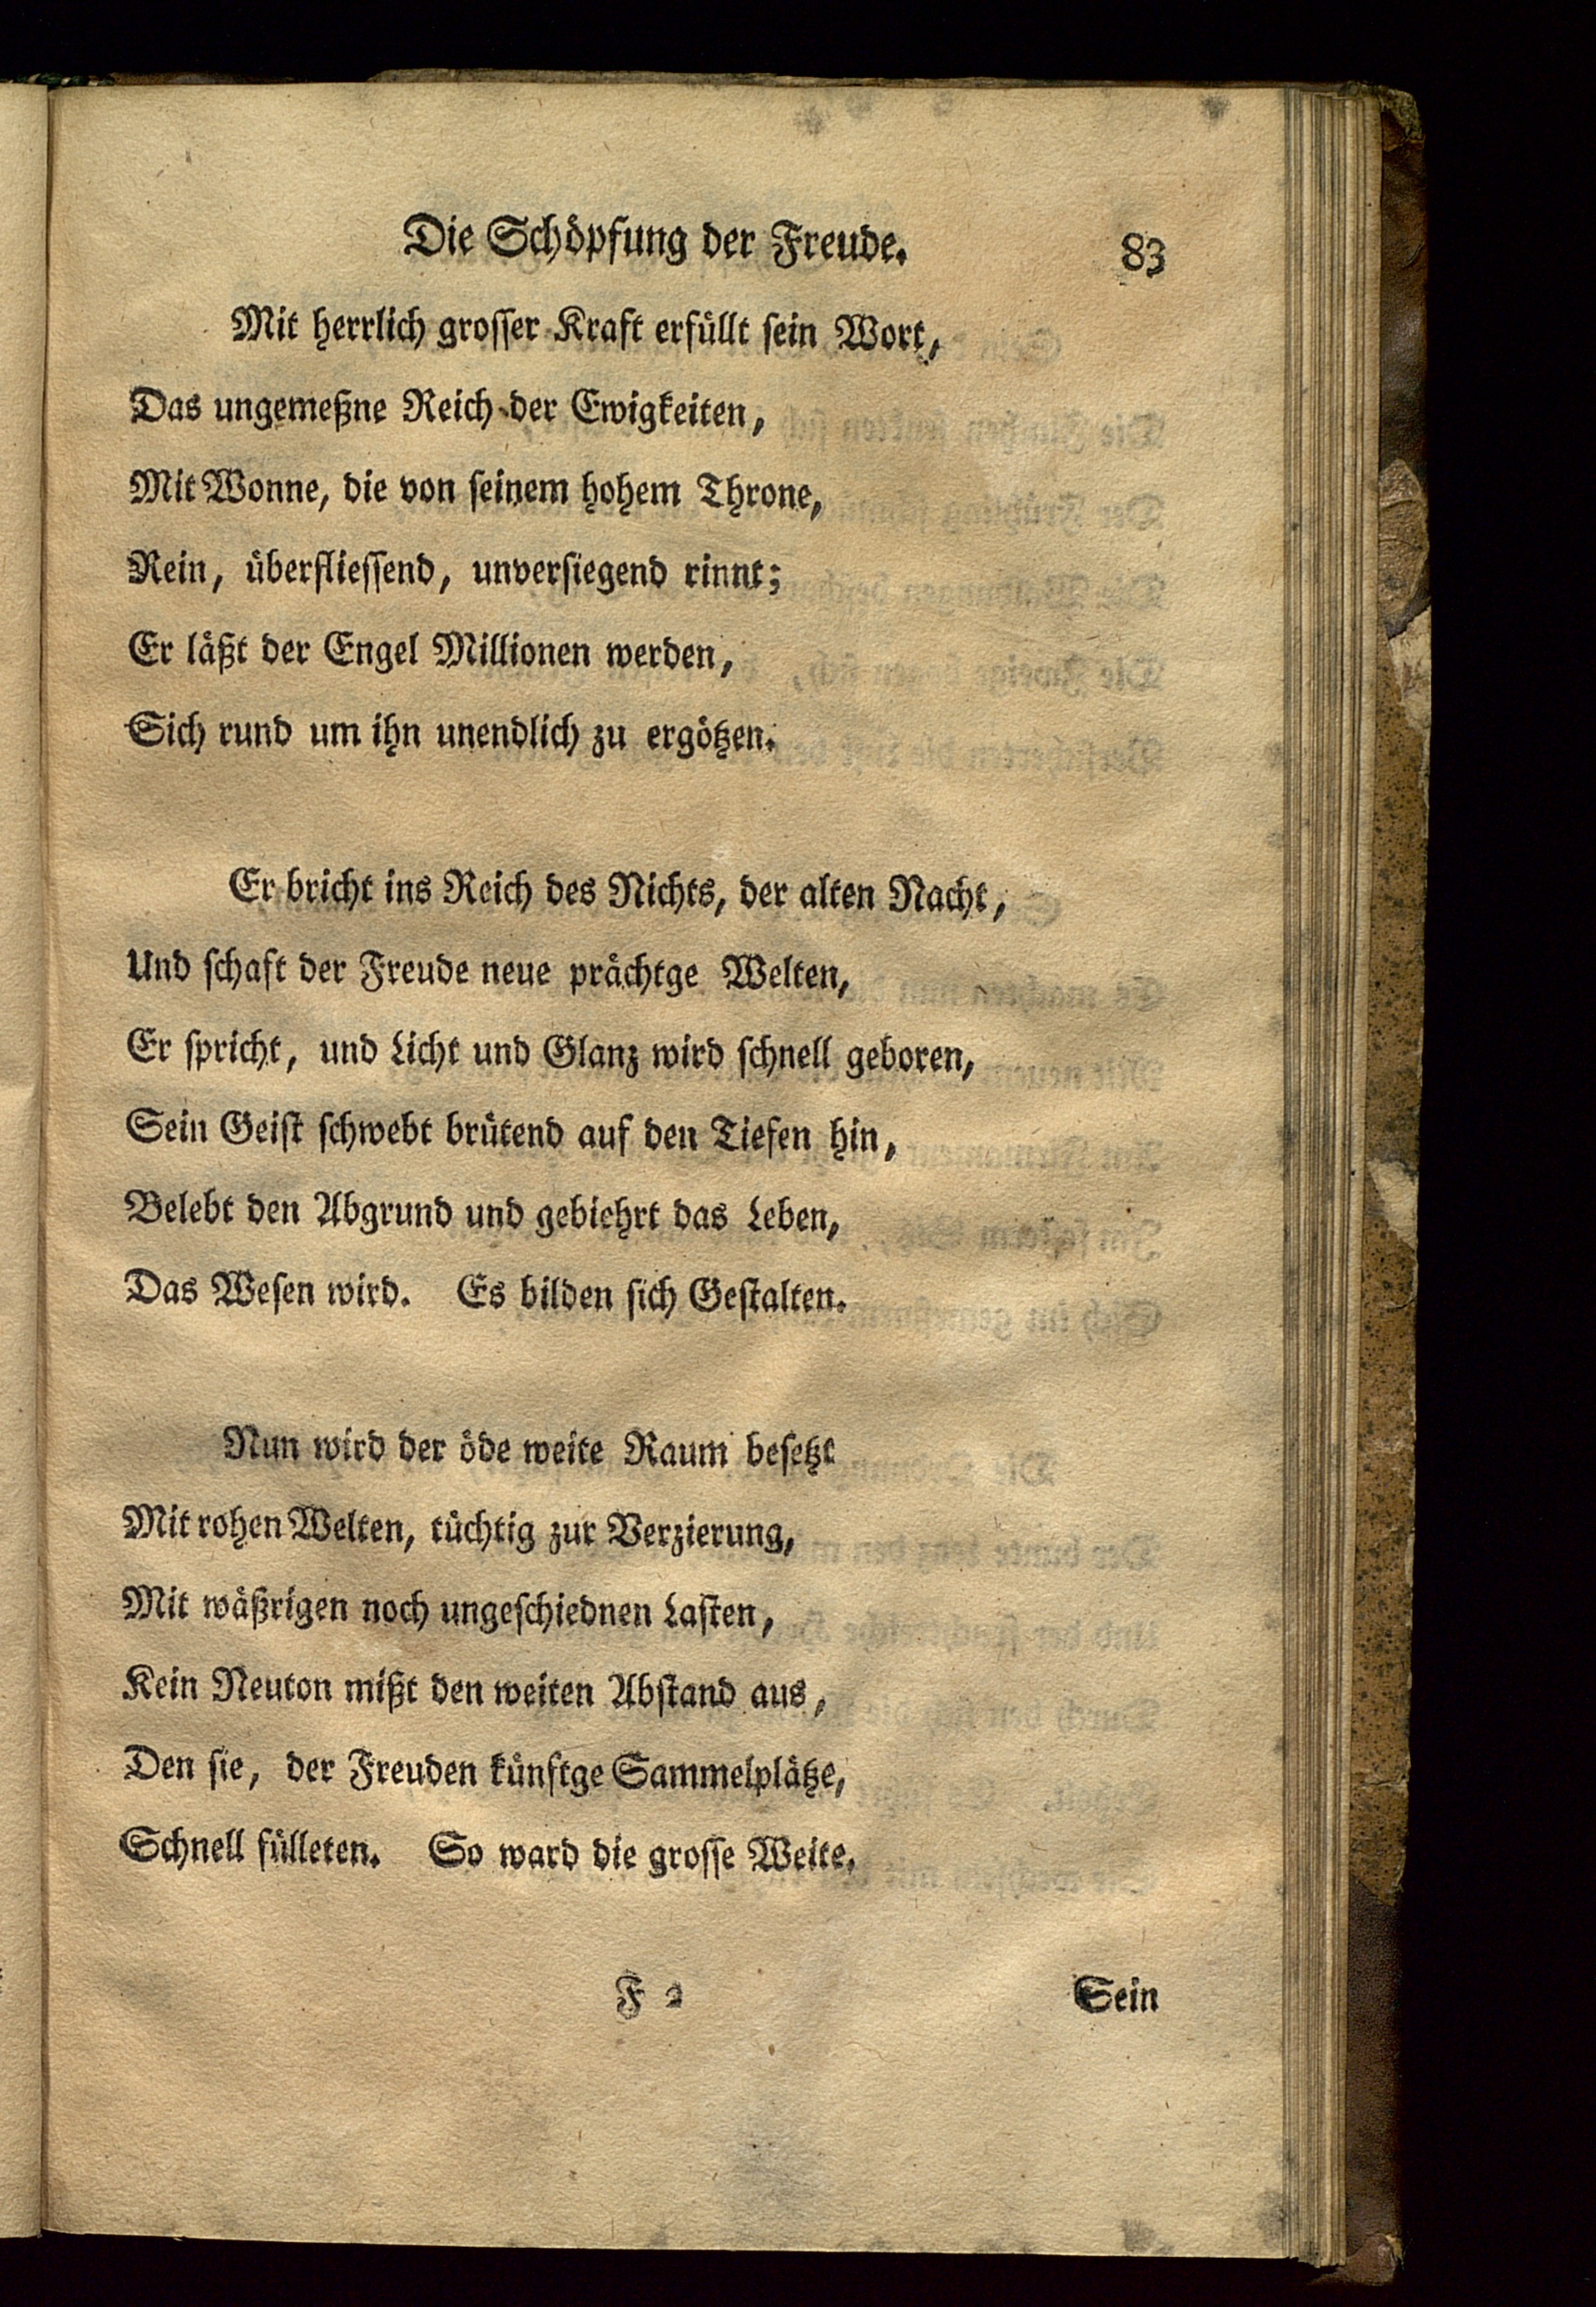 Die Schöpfung der Freude. 83
Mit herrlich grosser Kraft erfüllt sein Wort,
Das ungemeßne Reich der Ewigkeiten,
Mit Wonne, die von seinem hohem Throne,
Rein, überfliessend, unversiegend rinnt;
Er läßt der Engel Millionen werden,
Sich rund um ihn unendlich zu ergötzen.
Er bricht ins Reich des Nichts, der alten Nacht,
Und schaft der Freude neue prächtge Welten,
Er spricht, und Licht und Glanz wird schnell geboren,
Sein Geist schwebt brütend auf den Tiefen hin,
Belebt den Abgrund und gebiehrt das Leben,
Das Wesen wird. Es bilden sich Gestalten.
Nun wird der öde weite Raum besetzt
Mit rohen Welten, tüchtig zur Verzierung,
Mit wäßrigen noch ungeschiednen Lasten,
Kein Neuton mißt den weiten Abstand aus,
Den sie, der Freuden künftge Sammelplätze,
Schnell fülleten. So ward die grosse Weite,
F 2 Sein